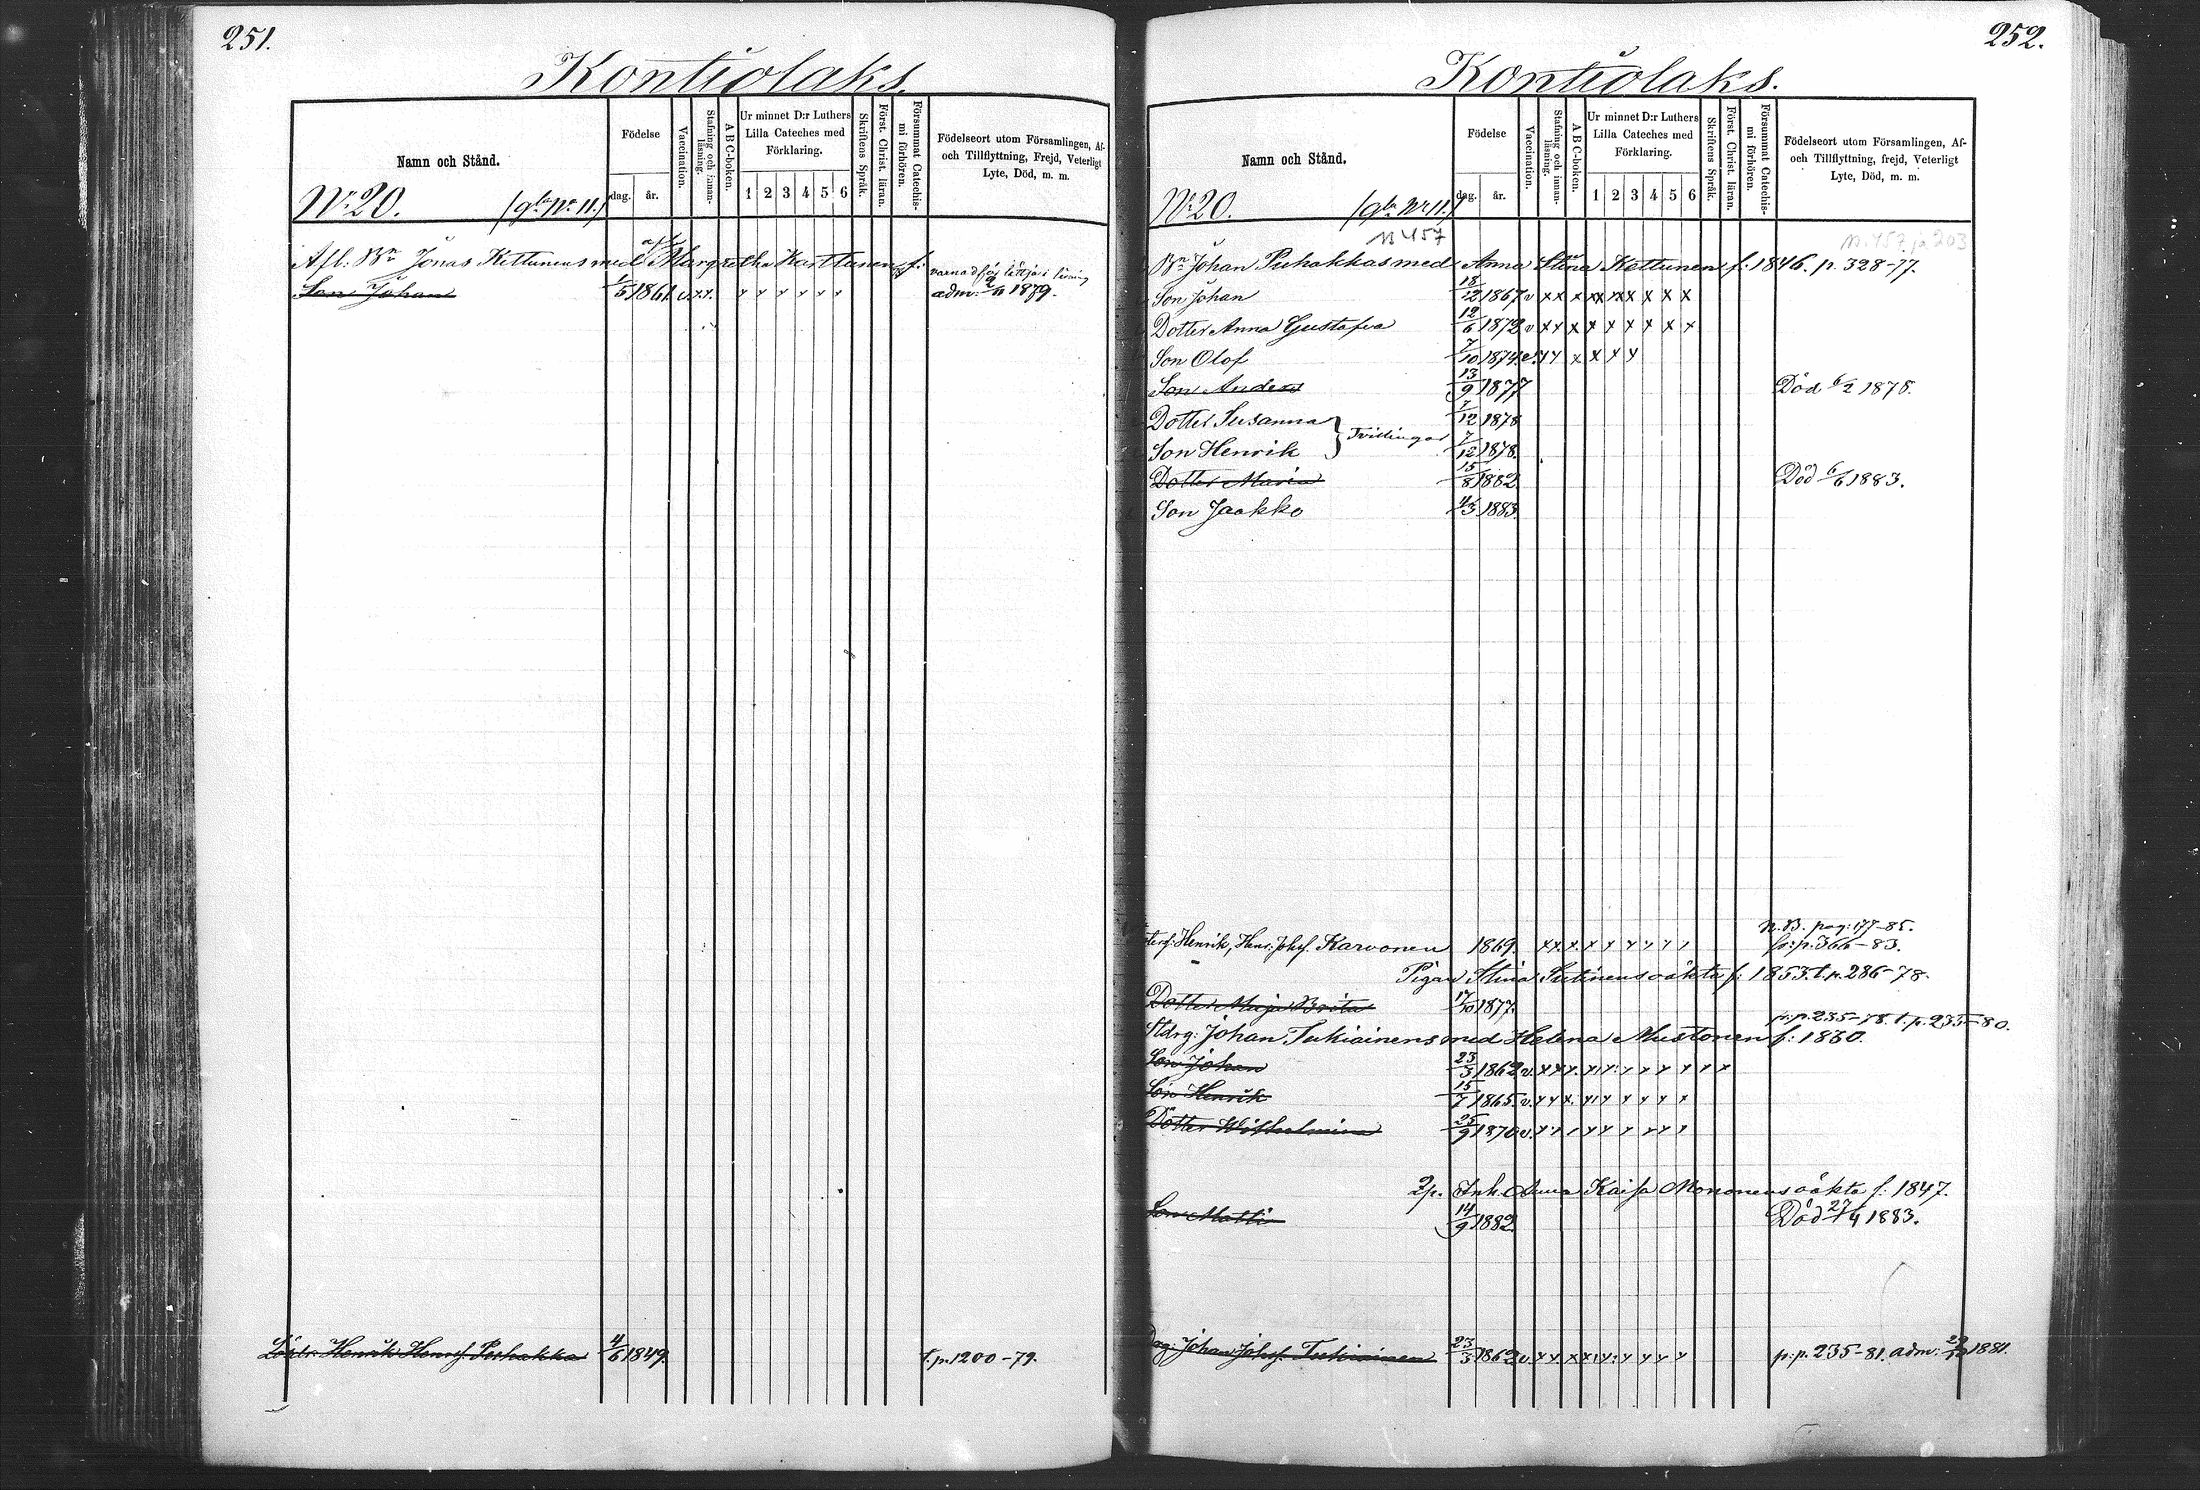 251.
Kontiolaks.
Namn och Stånd.
Födelse
dag.
år.
Vaccination.
Stafning och innan-läsning.
A B C-boken.
Ur minnet D:r Luthers
Lilla Cateches med
Förklaring.
1 2 3 4 5 6
Skriftens Språk.
Först. Christ. läran.
Försummat Catechis-mi förhören.
Födelseort utom Församlingen, Af-
och Tillflyttning, Frejd, Veterligt
Lyte, Död, m. m.
No 20. (gla No 11.)
Afl: Bn Jonas Kettunens med Margretha Karttunen f:
Son Johan 1/5 1861. v. x x. x x x x x x adm: 2/11 1879.
Henrik Henrsf. Puhakka 4/6 1849. t.p. 1200-79.
252.
Kontiolaks.
Namn och Stånd.
Födelse
dag.
år.
Vaccination.
Stafning och innan-läsning.
A B C-boken.
Ur minnet D:r Luthers
Lilla Cateches med
Förklaring.
1 2 3 4 5 6
Skriftens Språk.
Först. Christ. läran.
Försummat Catechis-mi förhören.
Födelseort utom Församlingen, Af-
och Tillflyttning, frejd, Veterligt
Lyte, Död, m. m.
No 20. (gla No 11.)
n 457
n. 457 ja 203
Bn Johan Puhakkas med Anna Stina Kettunen f: 1846. p. 328-77.
Son Johan 18/12 1867 v x x x xx xx x x x x
Dotter Anna Gustafva 12/6 1872 v x x x x x x x x x
Son Olof 7/10 1874 x x x x x x
Son Anders 13/9 1877 Död 6/2 1878.
Dotter Susanna } Tvillingar 7/12 1878
Son Henrik 7/12 1878.
Dotter Maria 15/8 1882 Död 6/6 1883.
Son Jaakko 4/3 1883.
N.B. pag: 177-85.
Henrik, Henr: Johsf. Karvonen 1869. x x. x. x x x x x x fr: p. 366-83.
Pigan Stina Sutinens oäkta f: 1853. t. p. 286-78.
Dotter Maja Brita 17/10 1877.
p: p. 235-78. t. p. 235-80.
Stdrg: Johan Tukiainens med Helena Mustonen f: 1830.
Son Johan 23/3 1862 v. x x x. x x x x x x x x
Son Henrik 15/7 1865. v. x x x. x x x x x x
Dotter Wilhelmina 25/9 1870. v. x x x x x x x x x
2p. Inh. Anna Kaisa Monosens oäkta f: 1847.
Son Matti 14/9 1882. Död 27/4 1883.
Johan Johsf. Tukiainen 23/3 1862 v. x x x x x x x x x p: p. 235-81. adm: 1881.